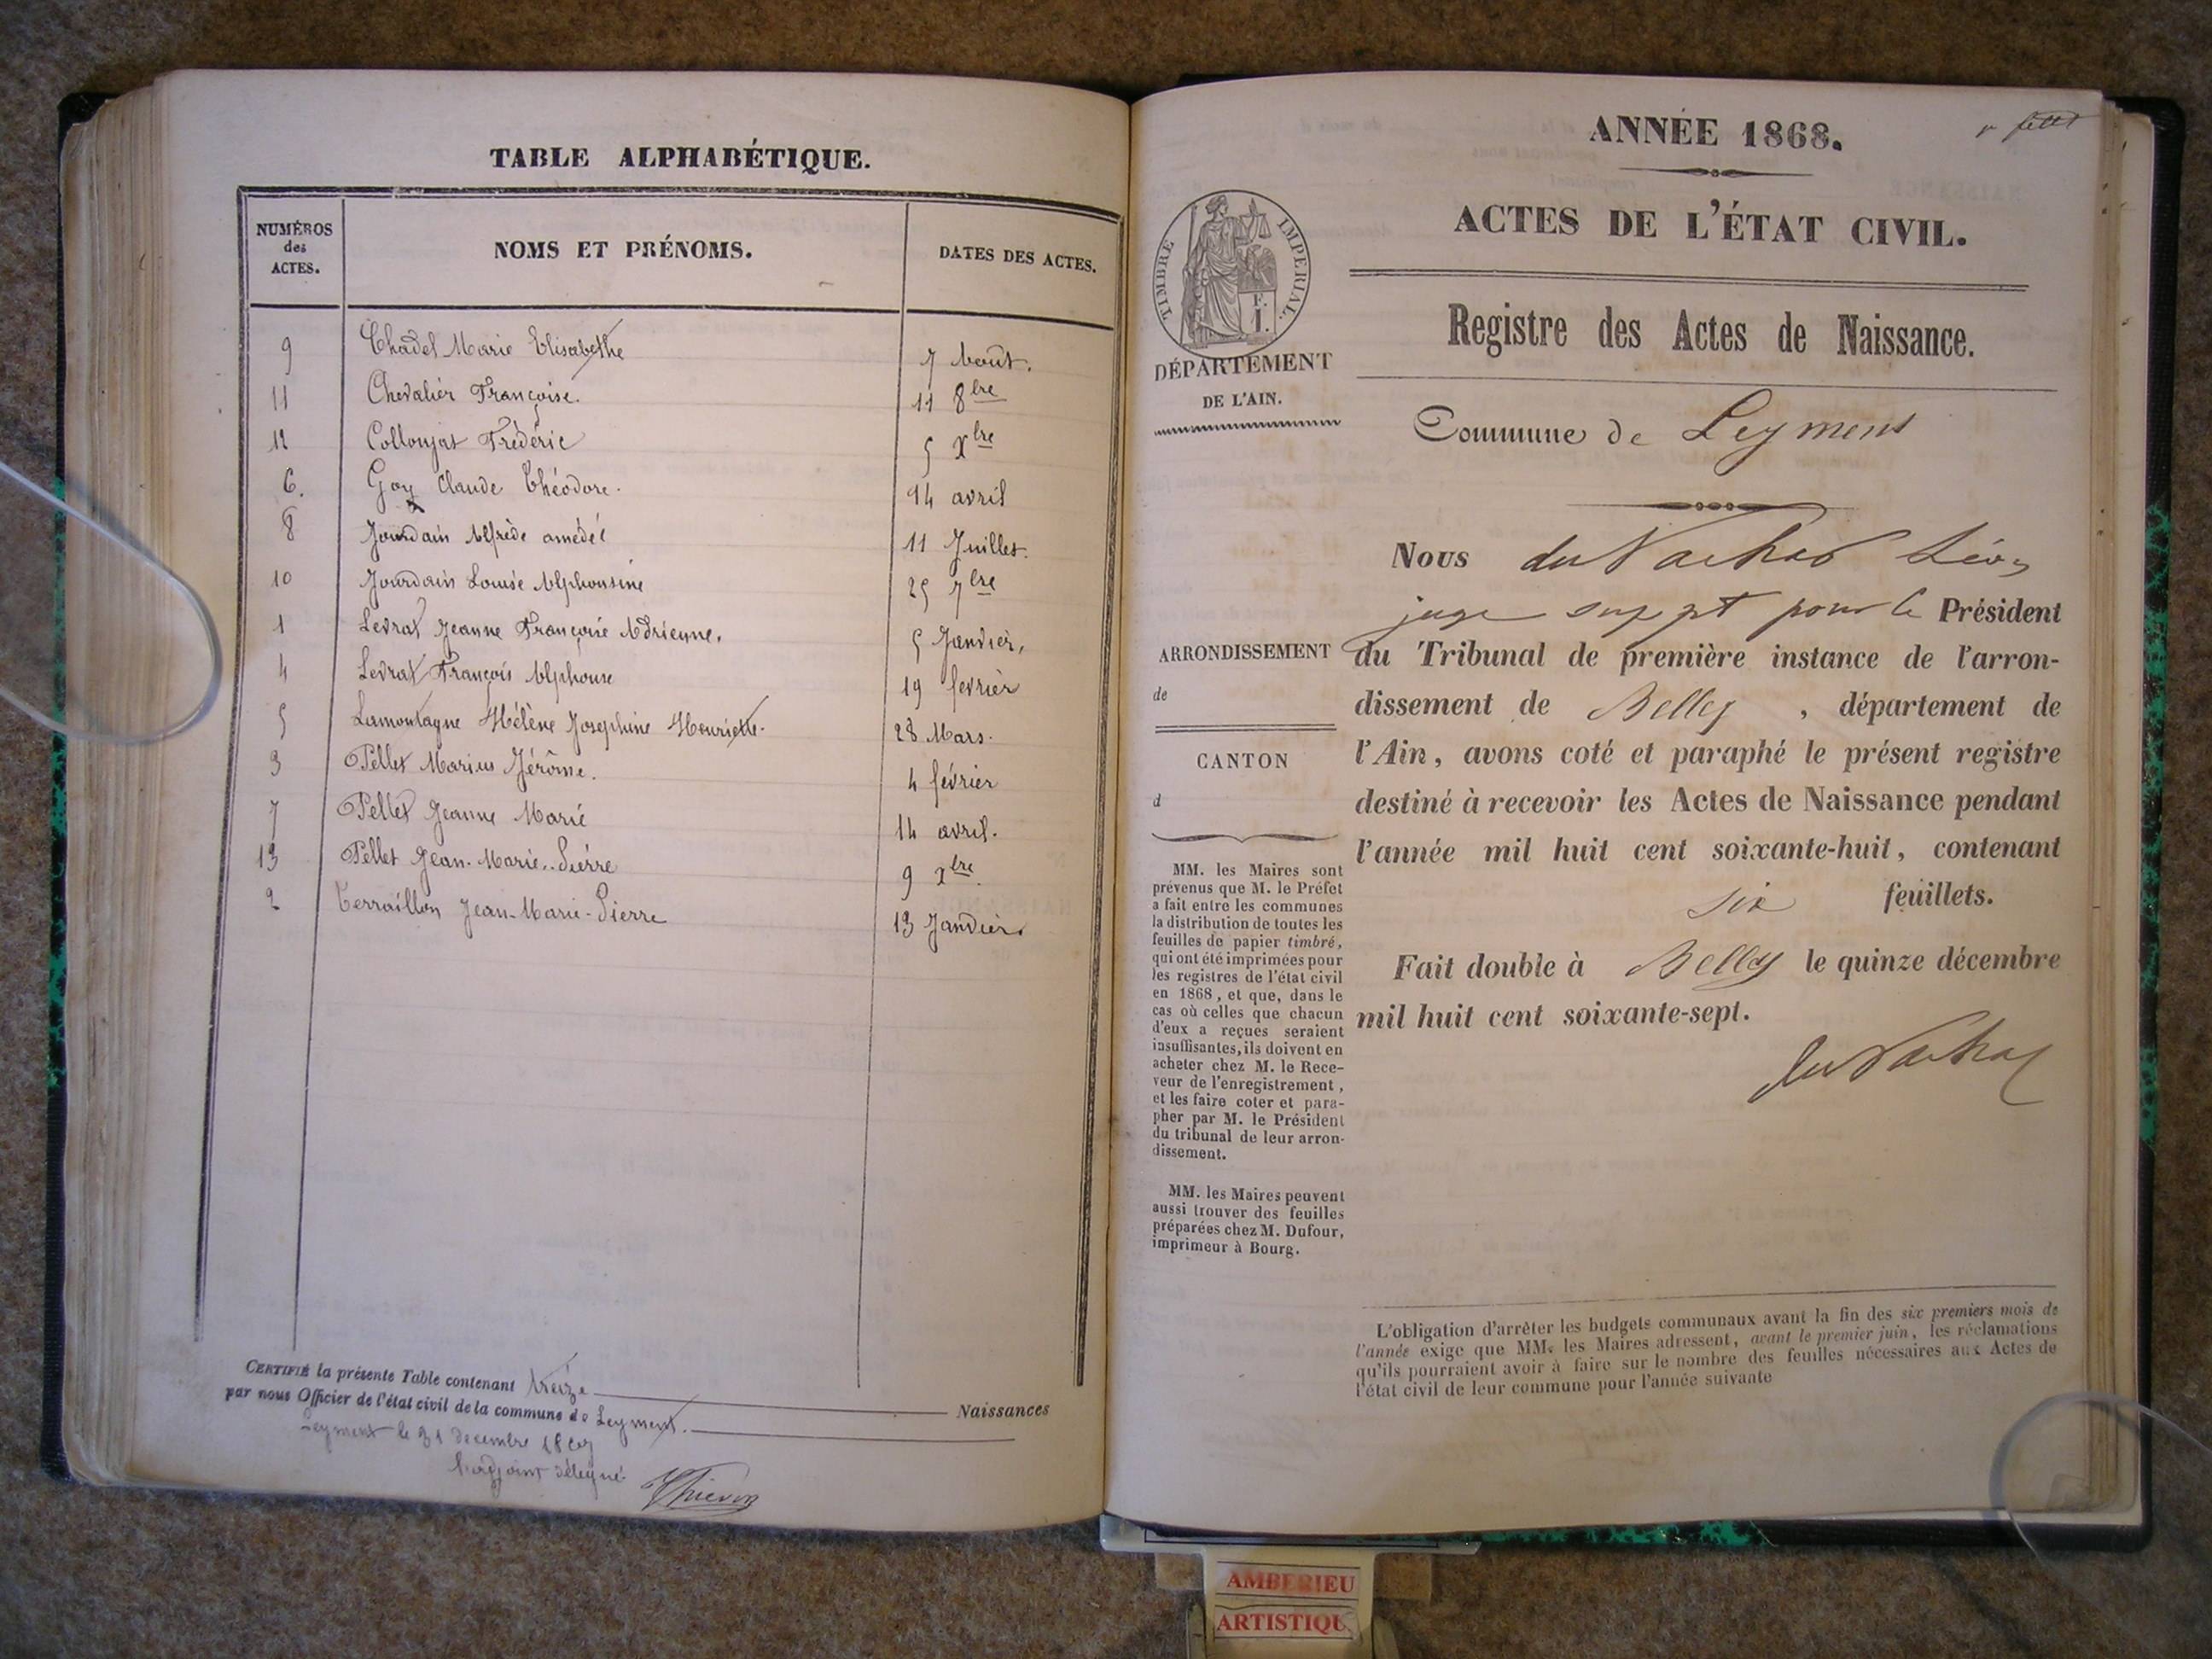 TABLE ALPHABÉTIQUE.
NUMÉROS des ACTES.
NOMS ET PRÉNOMS.
DATES DES ACTES.
9 Chadel Marie Elisabethe 7 Août.
11 Chevalier Françoise. 11 8bre
12 Collonjat Frédéric 5 Xbre
6. Goy Claude Théodore. 14 avril
8 Jourdain Alfrède amédée 11 Juillet.
10 Jourdain Louise Alphonsine 25 7bre
1 Levrat Jeanne Françoise Adrienne. 5 Janvier,
4 Levrat François Alphonse 19 fevrier
5 Lamontagne Hélène Josephine Henriette. 28 Mars.
3 Pellet Marius Jérôme. 4 février
7 Pellet Jeanne Marie 14 avril.
13 Pellet Jean-Marie-Pierre 9 xbre.
2 Terraillon Jean-Marie-Pierre 13 Janvier.
CERTIFIÉ la présente Table contenant treize Naissances
par nous Officier de l'état civil de la commune de Leyment.
Leyment le 31 decembre
L'adjoint délégué.
Thievon
ANNÉE 1868.
ACTES DE L'ÉTAT CIVIL.
Registre des Actes de Naissance.
TIMBRE IMPERIAL.
F.
J.
DÉPARTEMENT
DE L'AIN.
Commune de Leyment
Nous du Nachat Léon
juge suppt pour le Président
ARRONDISSEMENT
de
CANTON
d
du Tribunal de première instance de l'arron-
dissement de Belley, département de
l'Ain, avons coté et paraphé le présent registre
destiné à recevoir les Actes de Naissance pendant
l'année mil huit cent soixante-huit, contenant
six feuillets.
Fait double à Belley le quinze décembre
mil huit cent soixante-sept.
du Nachat
MM. les Maires sont
prévenus que M. le Préfet
a fait entre les communes
la distribution de toutes les
feuilles de papier timbré,
qui ont été imprimées pour
les registres de l'état civil
en 1868, et que, dans le
cas où celles que chacun
d'eux a reçues seraient
insuffisantes, ils doivent en
acheter chez M. le Rece-
veur de l'enregistrement,
et les faire coter et para-
pher par M. le Président
du tribunal de leur arron-
dissement.
MM. les Maires peuvent
aussi trouver des feuilles
préparées chez M. Dufour,
imprimeur à Bourg.
L'obligation d'arrêter les budgets communaux avant la fin des six premiers mois de
l'année exige que MM. les Maires adressent, avant le premier juin, les réclamations
qu'ils pourraient avoir à faire sur le nombre des feuilles nécessaires aux Actes de
l'état civil de leur commune pour l'année suivante
AMBERIEU
ARTISTIQUE